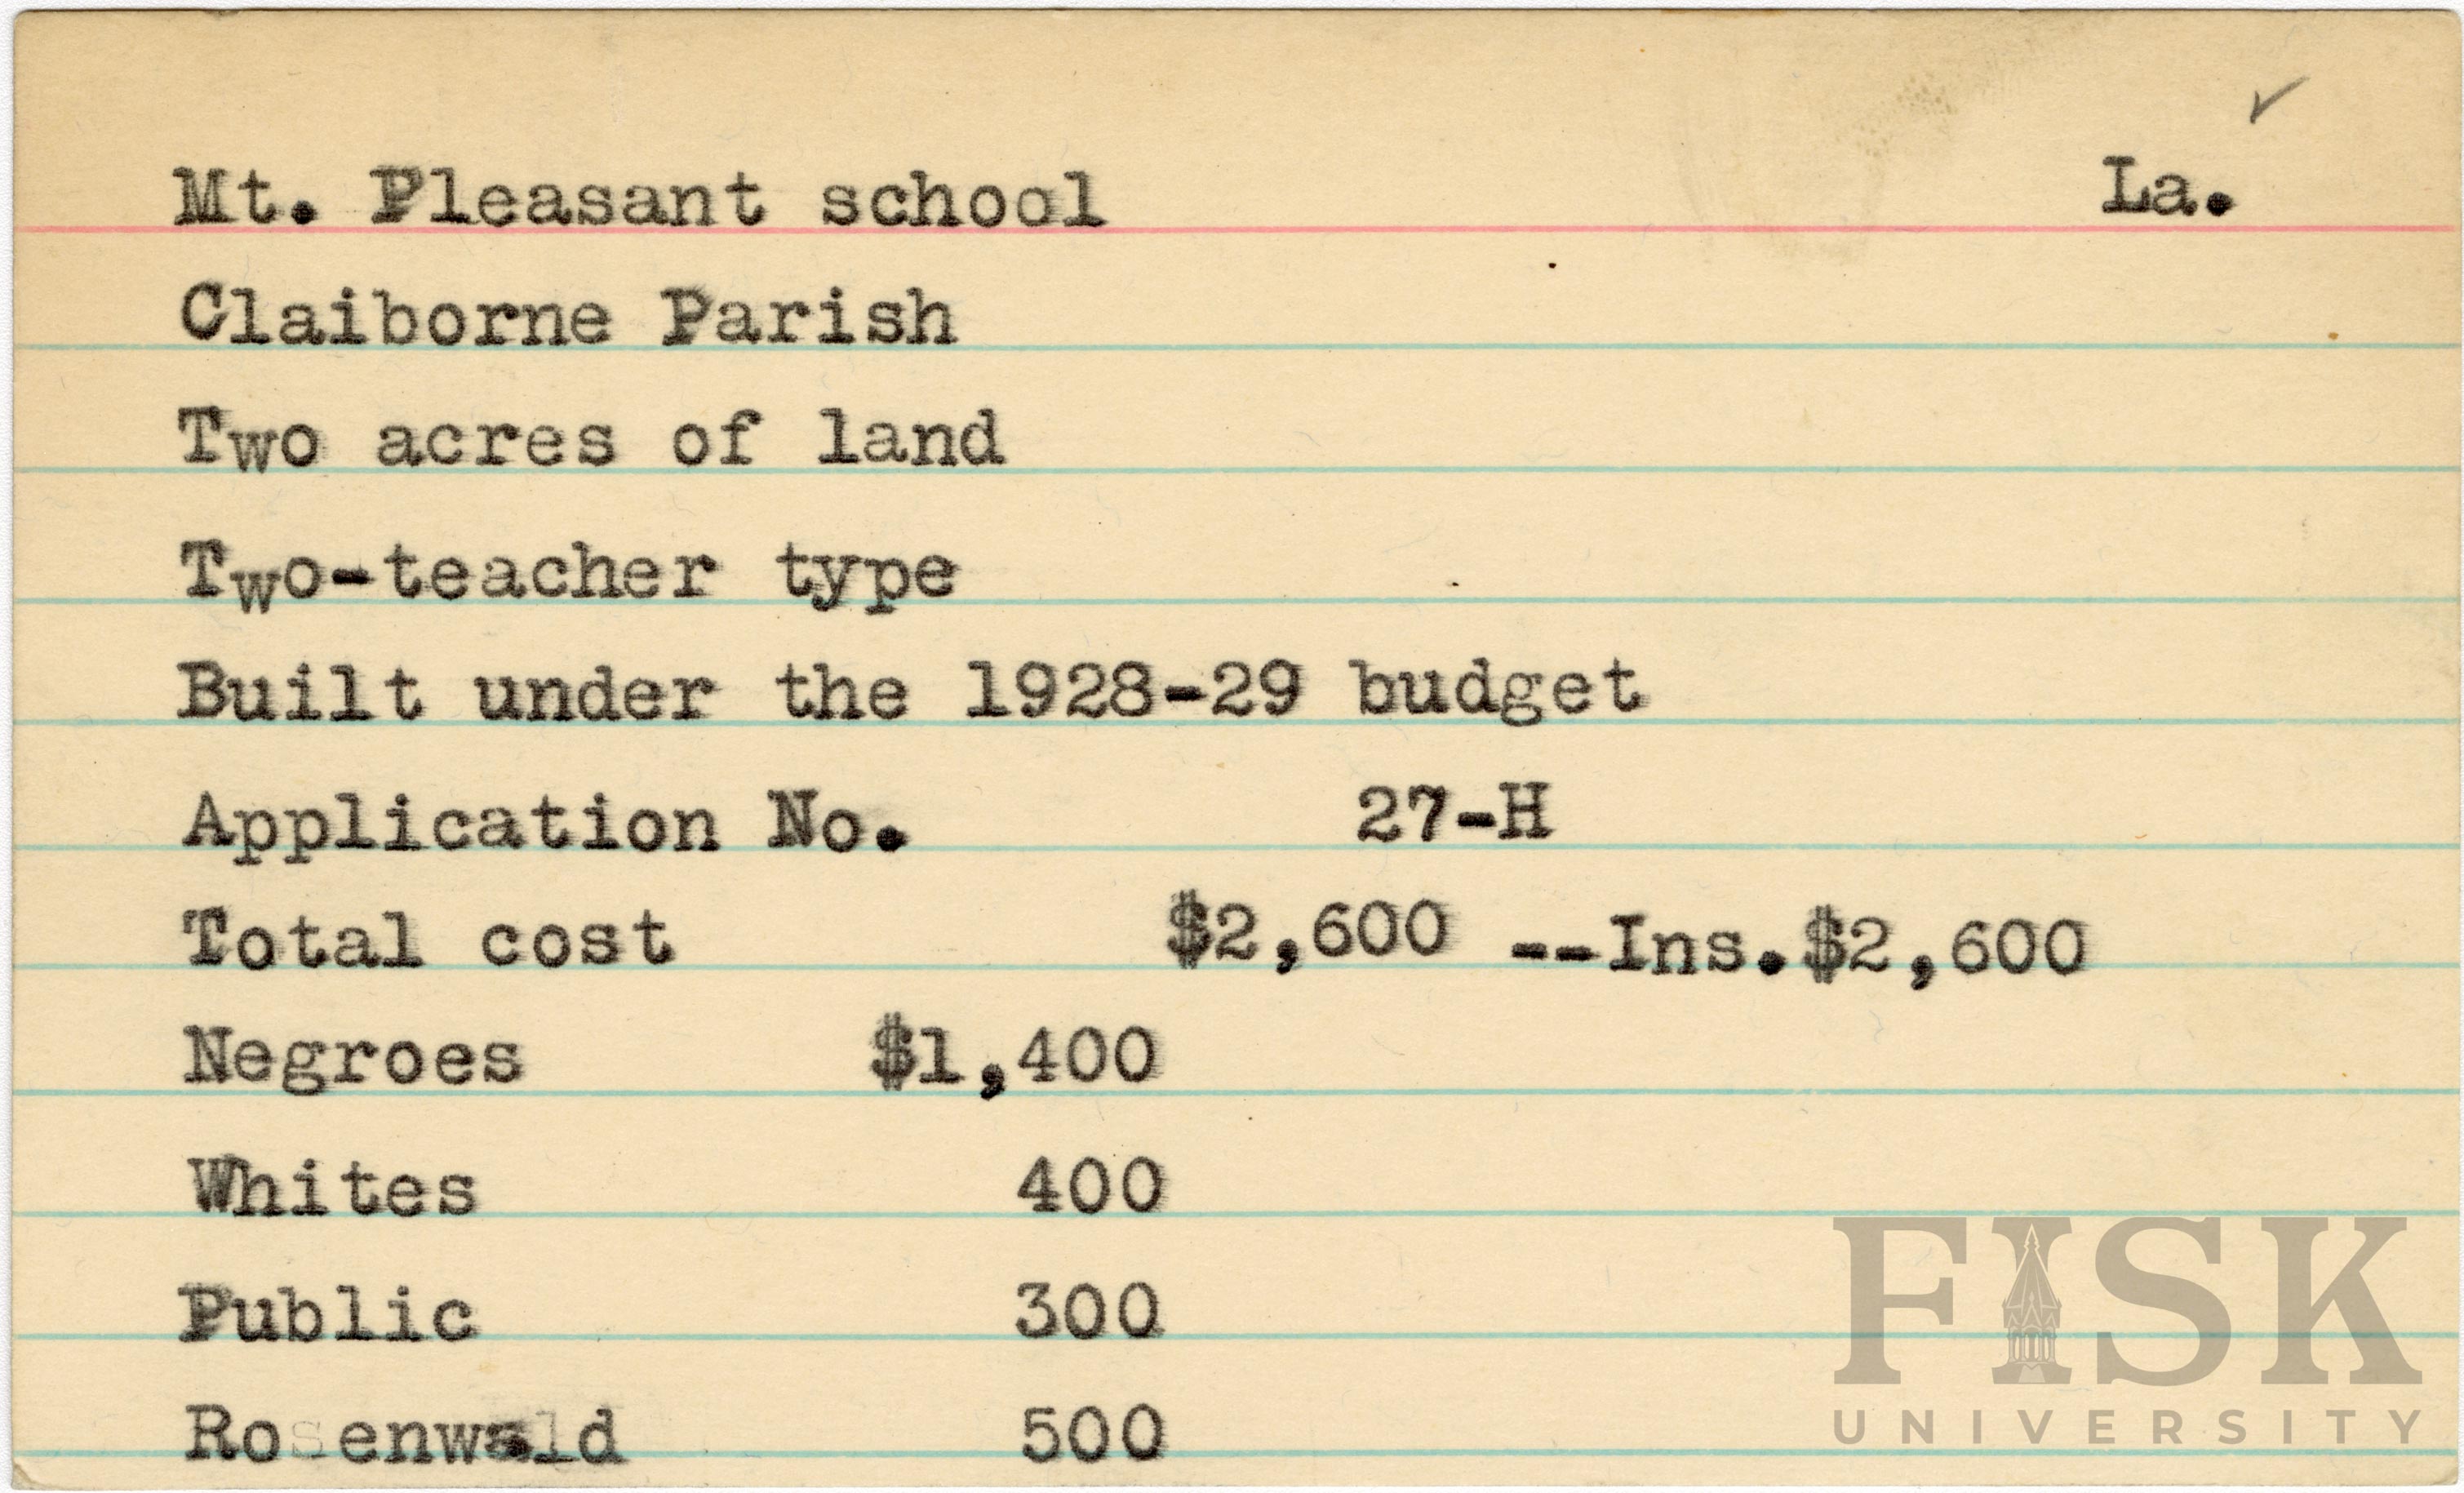 Mt. Pleasant school La.
Claiborne Parish
Two acres of land
Two-teacher type
Built under the 1928-29 budget
Application No. 27-H
Total cost $2,600 --Ins.$2,600
Negroes $1,400
Whites 400
Public 300
Rosenwald 500
FISK
UNIVERSITY